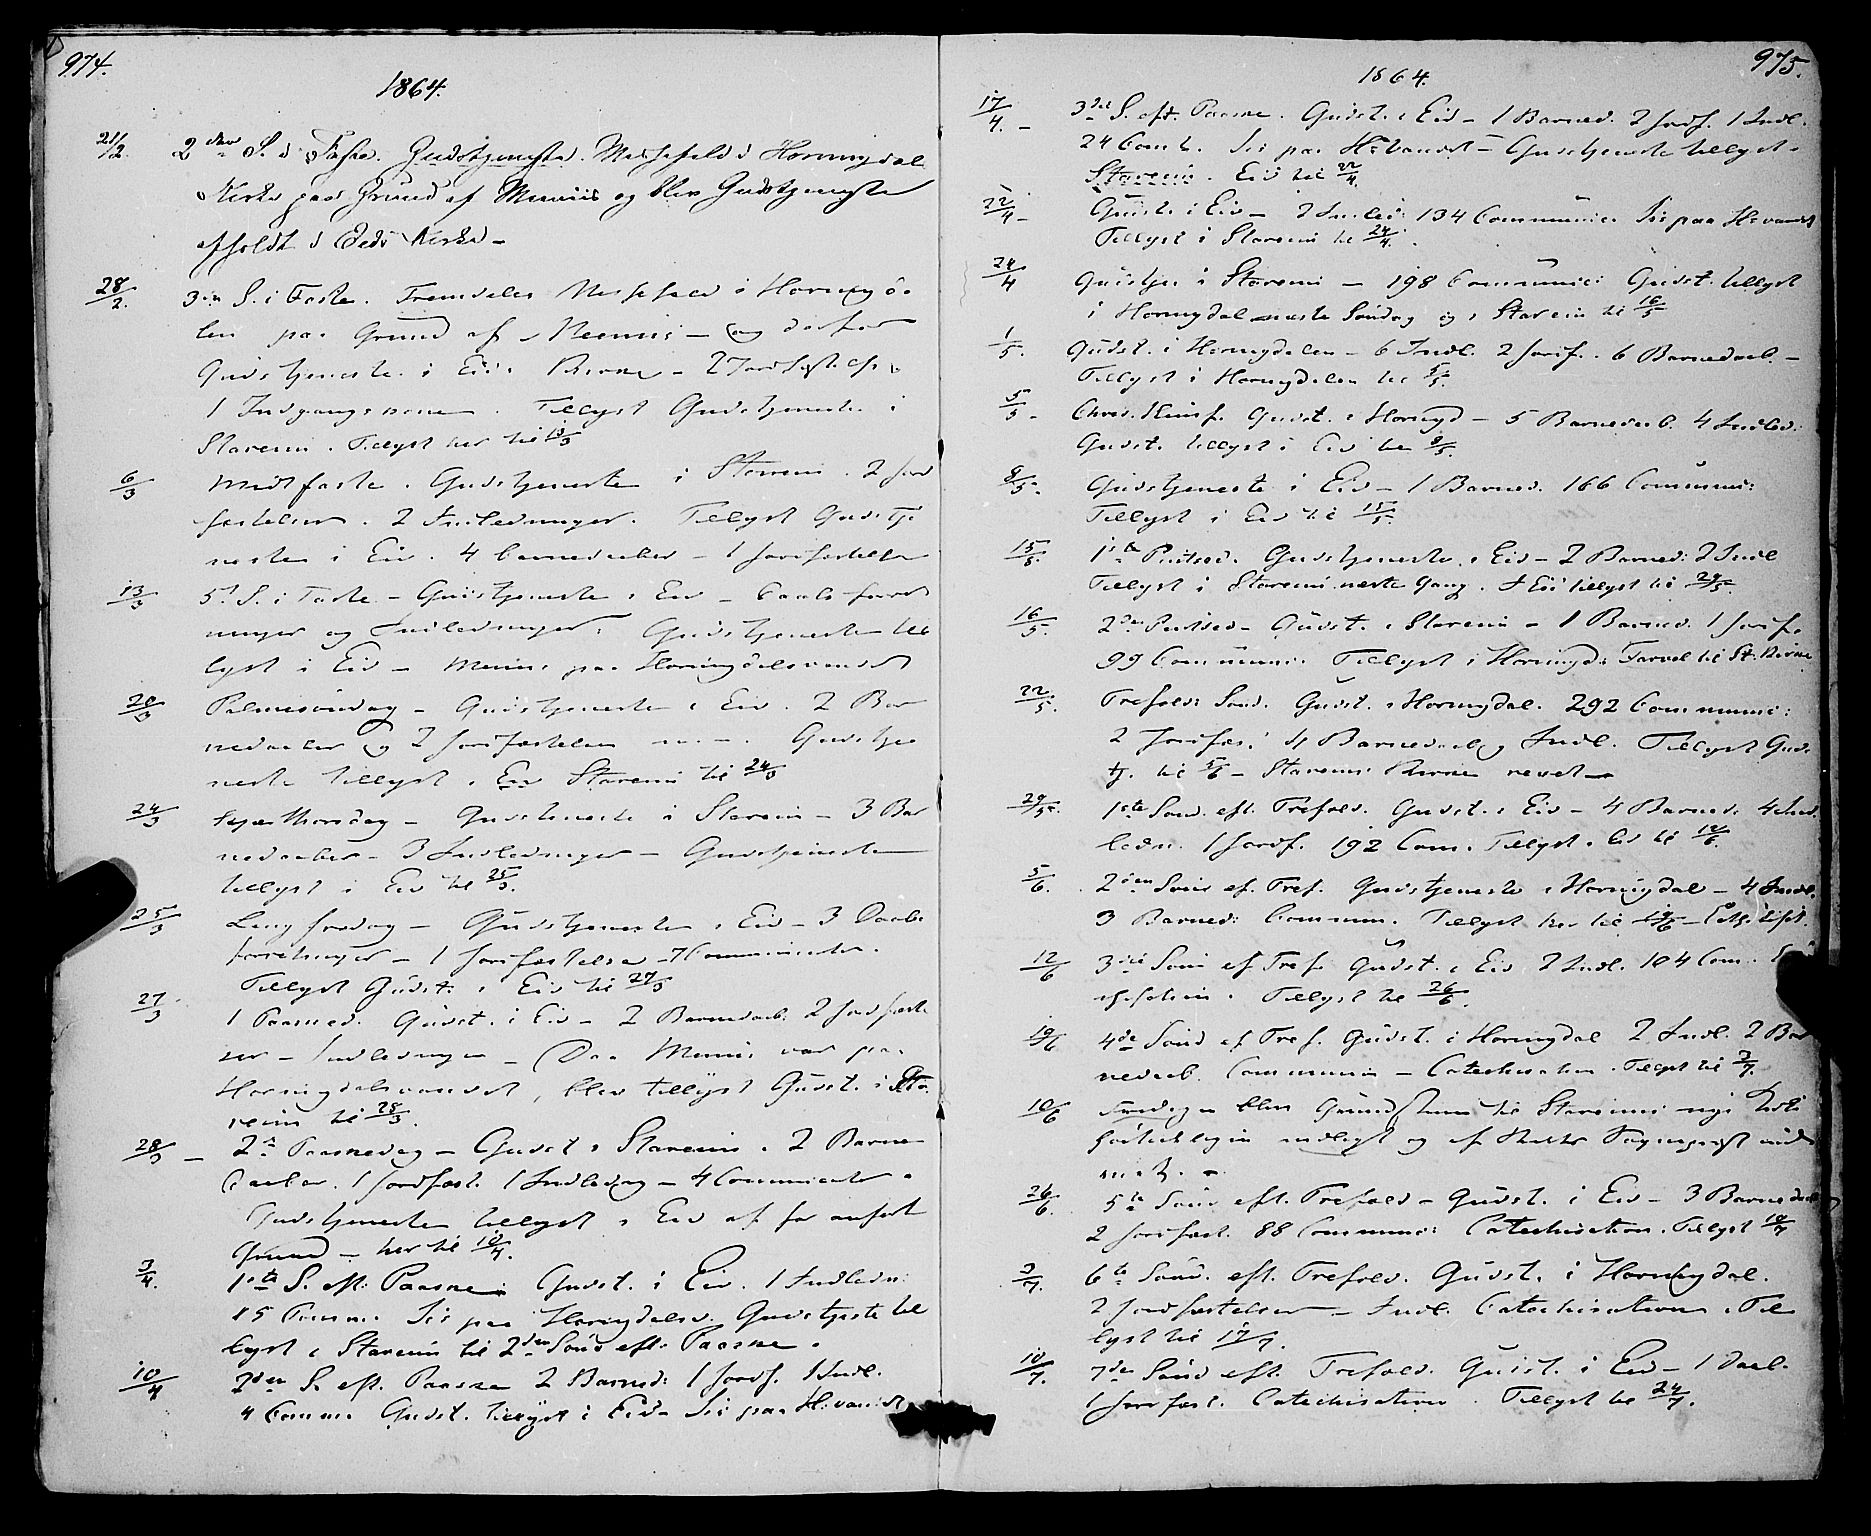 974.
1864.
21/2. 2den S. i Faste. Gudstjeneste. Messefald i Horningdal
Kirke paa Grund af Meenis og blev Gudstjeneste
afholdt i Eids Kirke –
28/2. 3die S. i Faste. Fremdeles Messefald i Horningda
len paa Grund af Meenis – og derfor
Gudstjeneste i Eids Kirke – 2 Jordfæstelse
1 Indgangskone. Tillyst Gudstjeneste i
Starem. Tillyst her til 13/3
6/3 Midtfaste. Gudstjeneste i Starem. 2 Jord
fæstelser. 2 Indledninger. Tillyst Gudstje
neste i Eid. 4 Barnedaaber – 1 Jordfæstelse
13/3 5t S. i Faste – Gudstjeneste i Eid – Daabsforret
ninger og Indledninger. Gudstjeneste til
lyst i Eid – Meenis paa Horningdalsvandet
20/3 Palmesøndag – Gudstjeneste i Eid. 2 Bar
nedaaber og 2 Jordfæstelser. Gudstje
neste tillyst i Eid Starem til 24/3
24/3 Skjærthorsdag – Gudstjeneste i Starem – 3 Bar
nedaaber – 3 Indledninger – Gudstjeneste
tillyst i Eid til 25/3.
25/3 Langfredag – Gudstjeneste i Eid – 3 Daabs
forretninger – 1 Jordfæstelse – 7 Communicanter.
Tillyst Gudst. i Eid til 27/3
27/3 1 Paasked. Gudst. i Eid – 2 Barnedaab. 2 Jordfæstel
ser – Indledninger – Da Meenis var paa
Horningdalsvandet, blev tillyst Gudst. i Sta
rem til 28/3.
28/3 – 2n Paaskedag – Gudst i Starem. 2 Barne
daaber. 1 Jordfæst. 1 Indledng – 4 Communicanter.
Gudstjeneste tillyst i Eid af før anført
Grund – her til 10/4.
3/4. 1ste S. eft. Paaske. Gudst. i Eid. 1 Indledn:
15 Comm. Iis paa Horningdalsv. Gudstjeste til
lyst i Starem til 2den Sønd eft. Paaske.
10/4 2den S. eft. Paaske 2 Barned: 1 Jordf. 1 Indl.
4 Comm. Gudst. tillyst i Eid – Iis paa H.vandet
975.
1864.
17/4. – 3die S. eft. Paaske. Gudst. i Eid – 1 Barned. 2 Jordf. 1 Indl.
24 Com. Iis paa H.vandet – Gudstjeneste tillyst
Starem. Eid til 22/4.
22/4 – Gudst. i Eid – 2 Indled: 134 Communic. Iis paa H.vandet
Tillyst i Starem til 24/4.
24/4 Gudstje i Starem – 198 Communic: Gudst. tillyst
i Horningdal næste Søndag og i Starem til 16/5
1/5. Gudst. i Horningdalen – 6 Indl. 2 Jordf. 6 Barnedaab. –
Tillyst i Horningdalen til 5/5.
5/5 – Christi Himf. Gudst. i Horningd – 5 Barnedaab. 4 Indled:
Gudst. tillyst i Eid til 8/5.
8/5 – Gudstjeneste i Eid – 1 Barned. 166 Communi:
Tillyst i Eid til 15/5.
15/5. 1ste Pintsed. Gudstjeneste i Eid – 2 Barned: 2 Indl
Tillyst i Starem næste Gang. I Eid tillyst til 29/5.
16/5. 2den Pintsed – Gudst. i Starem – 1 Barned. 1 Jordf.
99 Communi. Tillyst i Horningd: Farvel til St. Kirke
22/5. Trefold: Sønd. Gudst. i Horningdal. 292 Communi:
2 Jordfæs: 4 Barnedaab og Indl. Tillyst Guds
tj. til 5/6 – Starems Kirke revet –
29/5. 1ste Sønd. eft. Trefold. Gudst. i Eid – 4 Barned: 4 Ind
ledn. 1 Jordf. 192 Com. Tillyst i Eid til 12/6.
5/6. 2den Sønd ef. Tref. Gudstjeneste i Horningdal – 4 Indl.
3 Barned: Commun. Tillyst her til 19/6 –
12/6 3die Sønd ef Tref. Gudst. i Eid 2 Indl. 104 Com.
Tillyst til 26/6.
19/6 4de Sønd ef Tref. Gudst. i Horningdal 2 Indl. 2 Bar
nedaab. Communi – Catechisation. Tillyst til 3/7.
10/6 Fredag blev Grundstenen til Starems nye Kirke
nedlagt og af
26/6. 5te Sønd eft. Trefold – Gudst. i Eid – 3 Barnedaab
2 Jordfæst. 88 Communi: Catechisation. Tillyst 10/7
3/7. 6te Sønd. eft. Trefold. Gudst. i Horningdal.
2 Jordfæstelser – Indl. Catechisation. Til
lyst til 17/7.
10/7. 7den Sønd eft. Trefold. Gudst. i Eid – 1 Daab.
1 Jordfæst. Catechisation. Tillyst til 24/7.